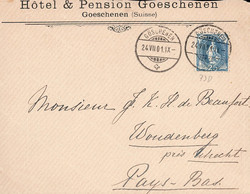 Hôtel & Pension Goeschenen
Goeschenen (Suisse)
GÖSCHENEN
24.VII.01.IX-
GÖSCHENEN
24.VII
Monsieur J. K. H. de Beaufort
Woudenberg
près Utrecht
Pays-Bas.